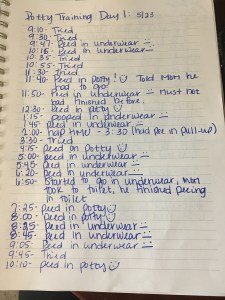 Potty Training Day 1: 5/23
9:10- Tried
9:30- Tried
9:47- Peed in underwear
10:18- Peed in underwear
10:35- Tried
10:55- Tried
11:30- Tried
11:40- Peed in potty! Told Mom he had to go!
11:50- Peed in underwear must not
had finished before.
12:30- Peed in potty
1:15- pooped in underwear
1:45- peed in underwear
2:00- nap time - 3:30 (had pee in pull-up)
3:30- Tried
4:15- peed on potty
5:00- peed in underwear
5:45- peed in underwear
6:20- peed in underwear
6:50- Started to go in underwear, mom
took to toilet, he finished peeing
in toilet
7:25- peed in potty
8:00- peed in potty
8:25- peed in underwear
8:45- peed in underwear
9:05- Peed in underwear
9:45- Tried
10:10- peed in potty